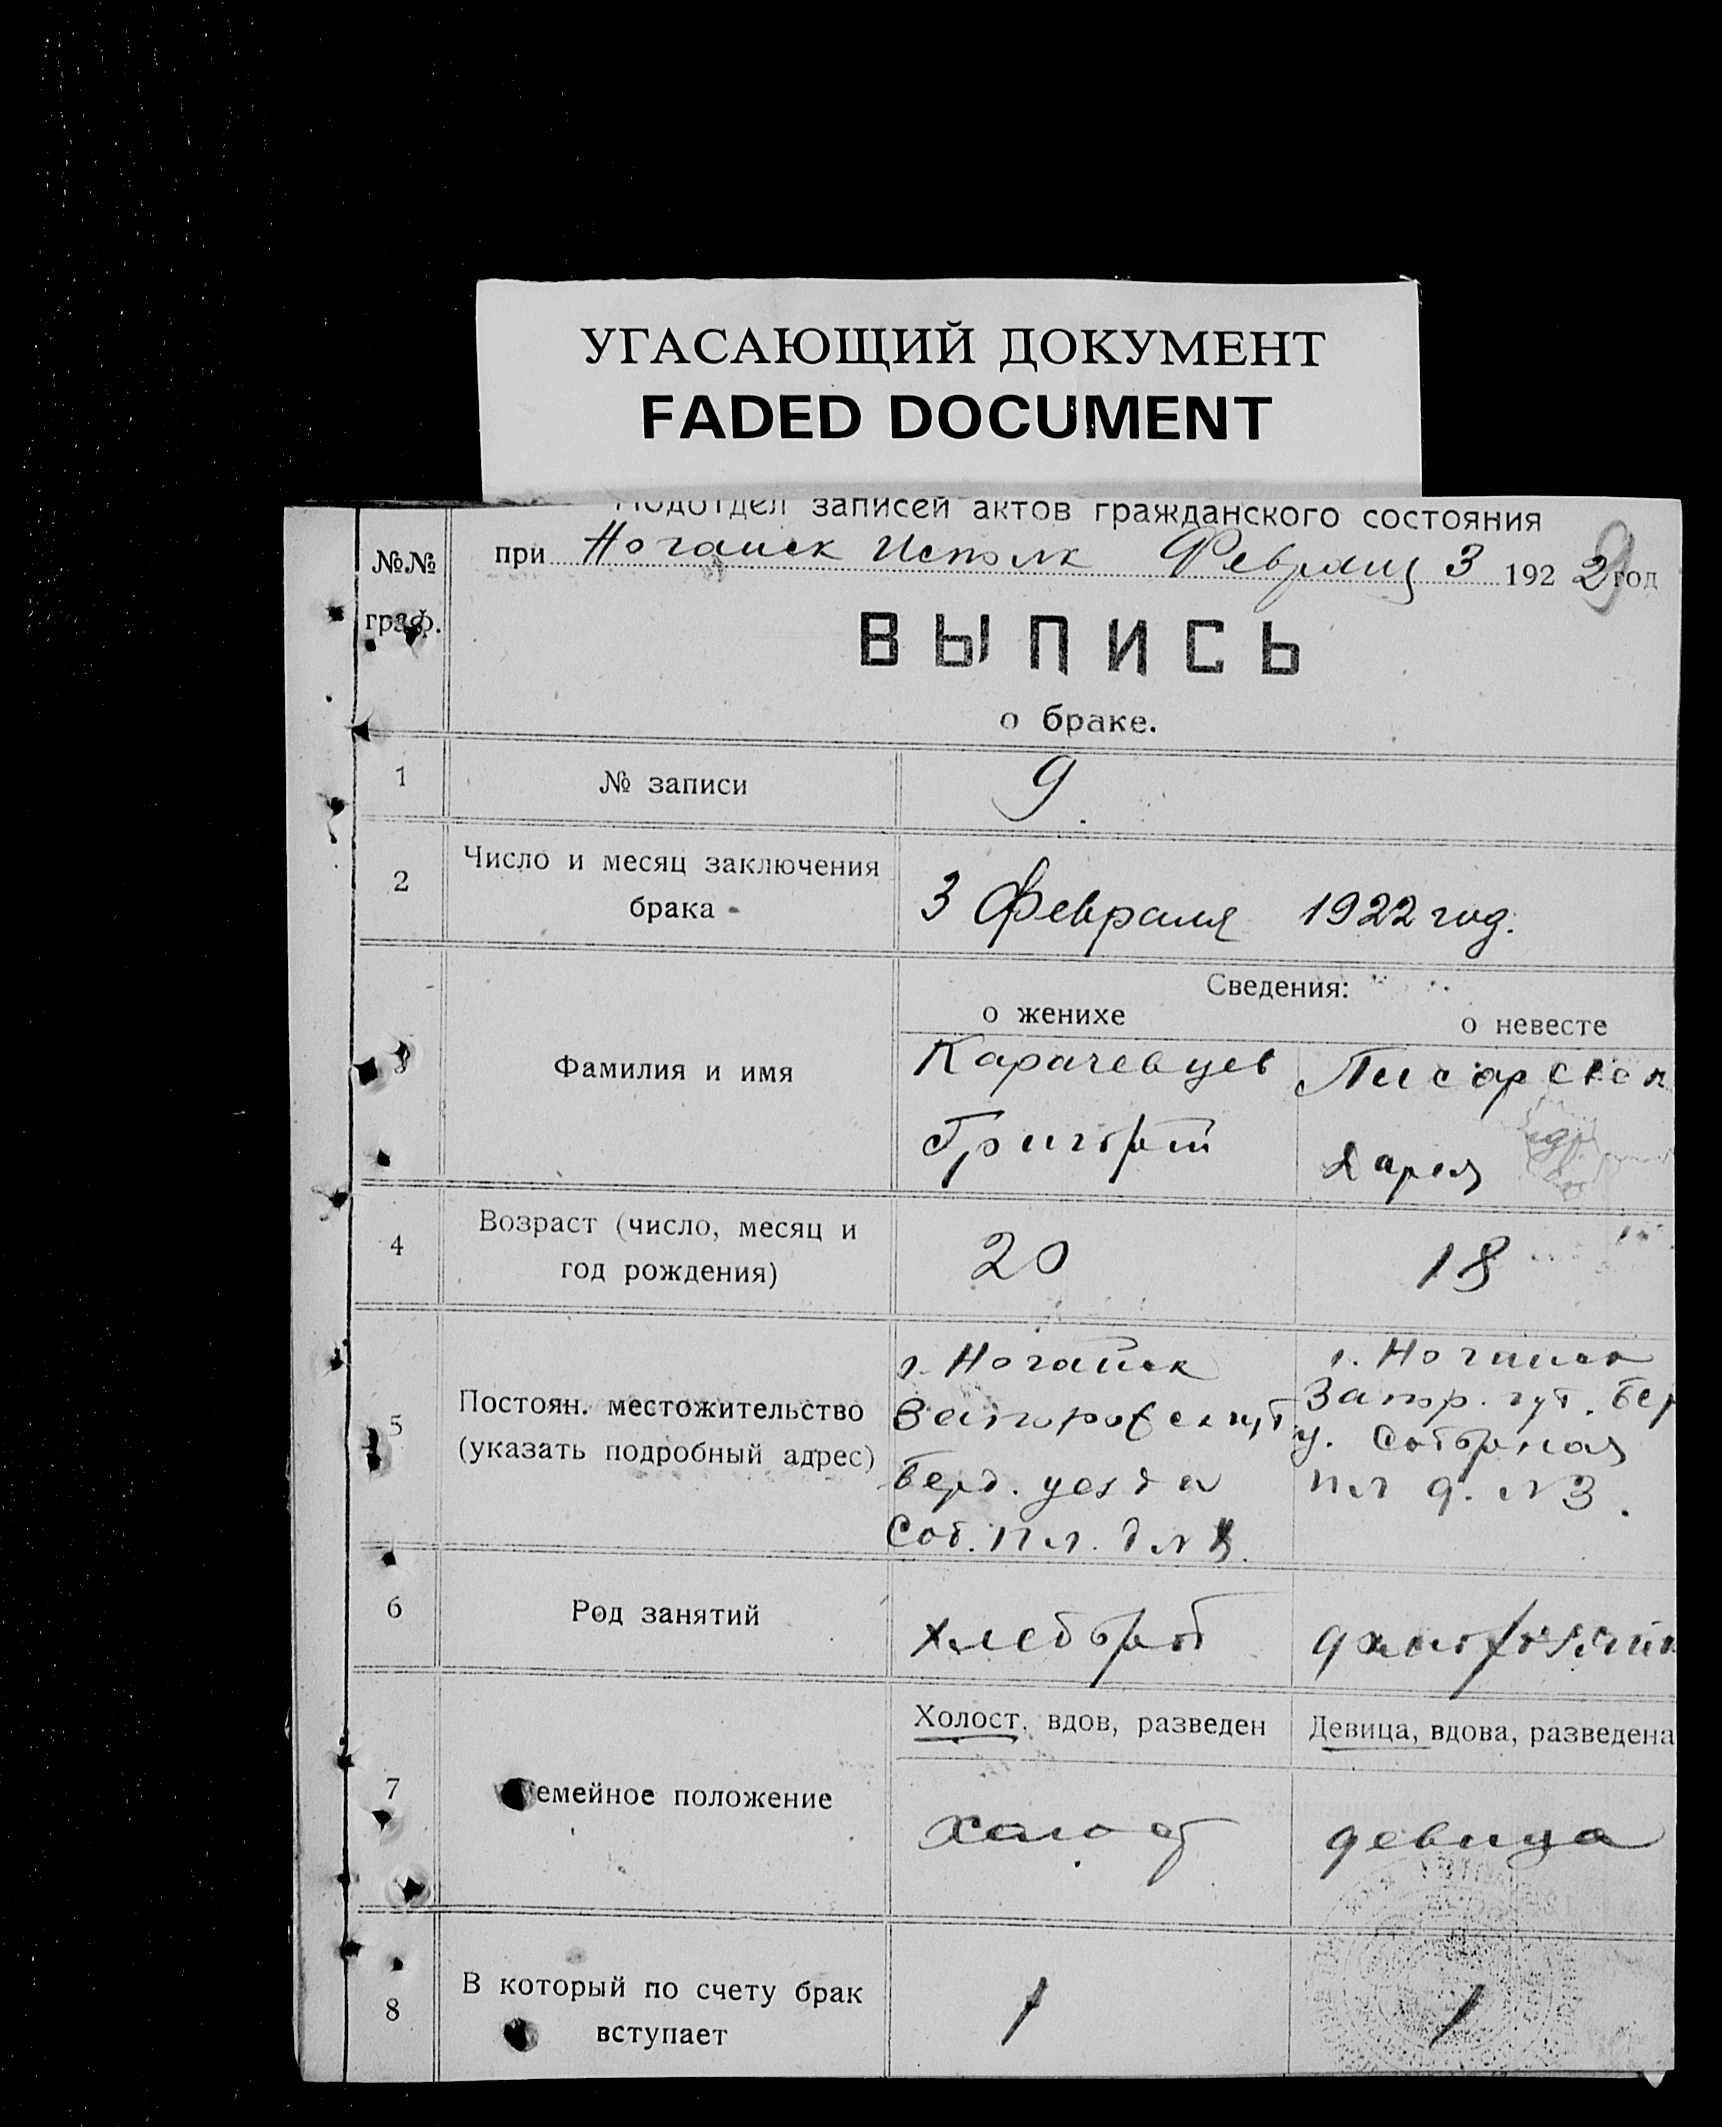 УГАСАЮЩИЙ ДОКУМЕНТ
FADED DOCUMENT
Подотдел записей актов гражданского состояния
при Ногайск Исполк Февраля 3 1922 год
9
№№
граф.
ВЫПИСЬ
о браке.
1 № записи 9.
2 Число и месяц заключения
брака
3 Февраля 1922 год.
Сведения:
о женихе о невесте
3 Фамилия и имя
Карачевцев Писарск
Григорий Дария
4 Возраст (число, месяц и
год рождения)
20 18
5 Постоян. местожительство
(указать подробный адрес)
г. Ногайск
Берд. уезда
Соб. пл. д №
г. Ногайск
Запор. губ. Бер
у. Соборная
пл д. № 3.
6 Род занятий
хлебороб
7 Семейное положение
Холост, вдов, разведен Девица, вдова, разведена
холост девица
8 В который по счету брак
вступает
1 1